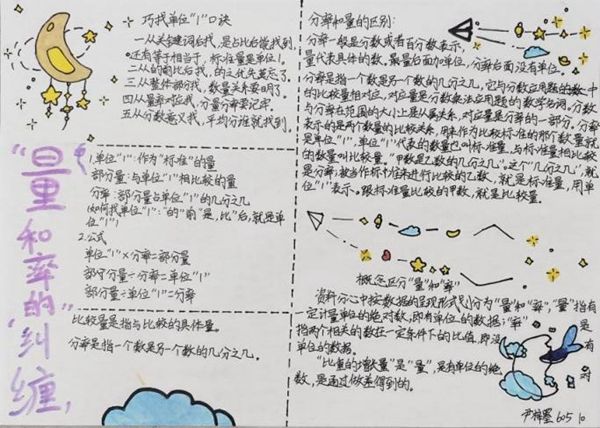 巧找单位"1"口诀
一从关键词后找,是占比后能找到
还有等于相当于,标准量是单位1。
二从的前比后找,的之优先莫忘了.
三从整体部分找,数量关系要明了.
四从量率对应找,分量分率要记牢.
五从分数意义找,平均分谁就找到.
"量和率的"纠缠,
1.单位"1":作为"标准"的量
部分量:与单位"1"相比较的量
分率:部分量占单位"1"的几分之几
(如何找单位"1":"的"前"是,比"后,就是单
位"1")
2.公式
单位"1"×分率=部分量
部分量÷分率=单位"1"
部分量÷单位"1"=分率
比较量是指与比较的具体量。
分率是指一个数是另一个数的几分之几。
分率和量的区别:
分率一般是分数或者百分数表示,
量代表具体的数。最量后面加单位,分率后面没有单位。
分率是指一个数是另一个数的几分之几,它与分数应用题的数中
的比较量相对应,对应量是分数乘法应用题的数学名词,分数
与分率在范围的大小上是从属关系,对应量是分率的一部分。分率
表示的是两个数量的比较关系,用来作为比较标准的那个数量就
是单位"1",单位"1"代表的数量也叫标准量,与标准量相比较
的数量叫比较量。"甲数是乙数的几分之几",这个"几分之几",就
是分率,被当作标中准来进行比较的乙数,就是标准量,用单
位"1"表示。跟标准量比较的甲数,就是比较量.
概念区分"量"和"率"
资料分心中按数据的呈现形式划分为"量"和"率","量"指有
一定计量单位的绝对数,即有单位的数据;"率"是
指两个相关的数在一定条件下的比值,即没有
单位的数据。
"比重的增长量"是"量",是有单位的绝对
数,是通过做差得到的.
尹梓墨 605 10